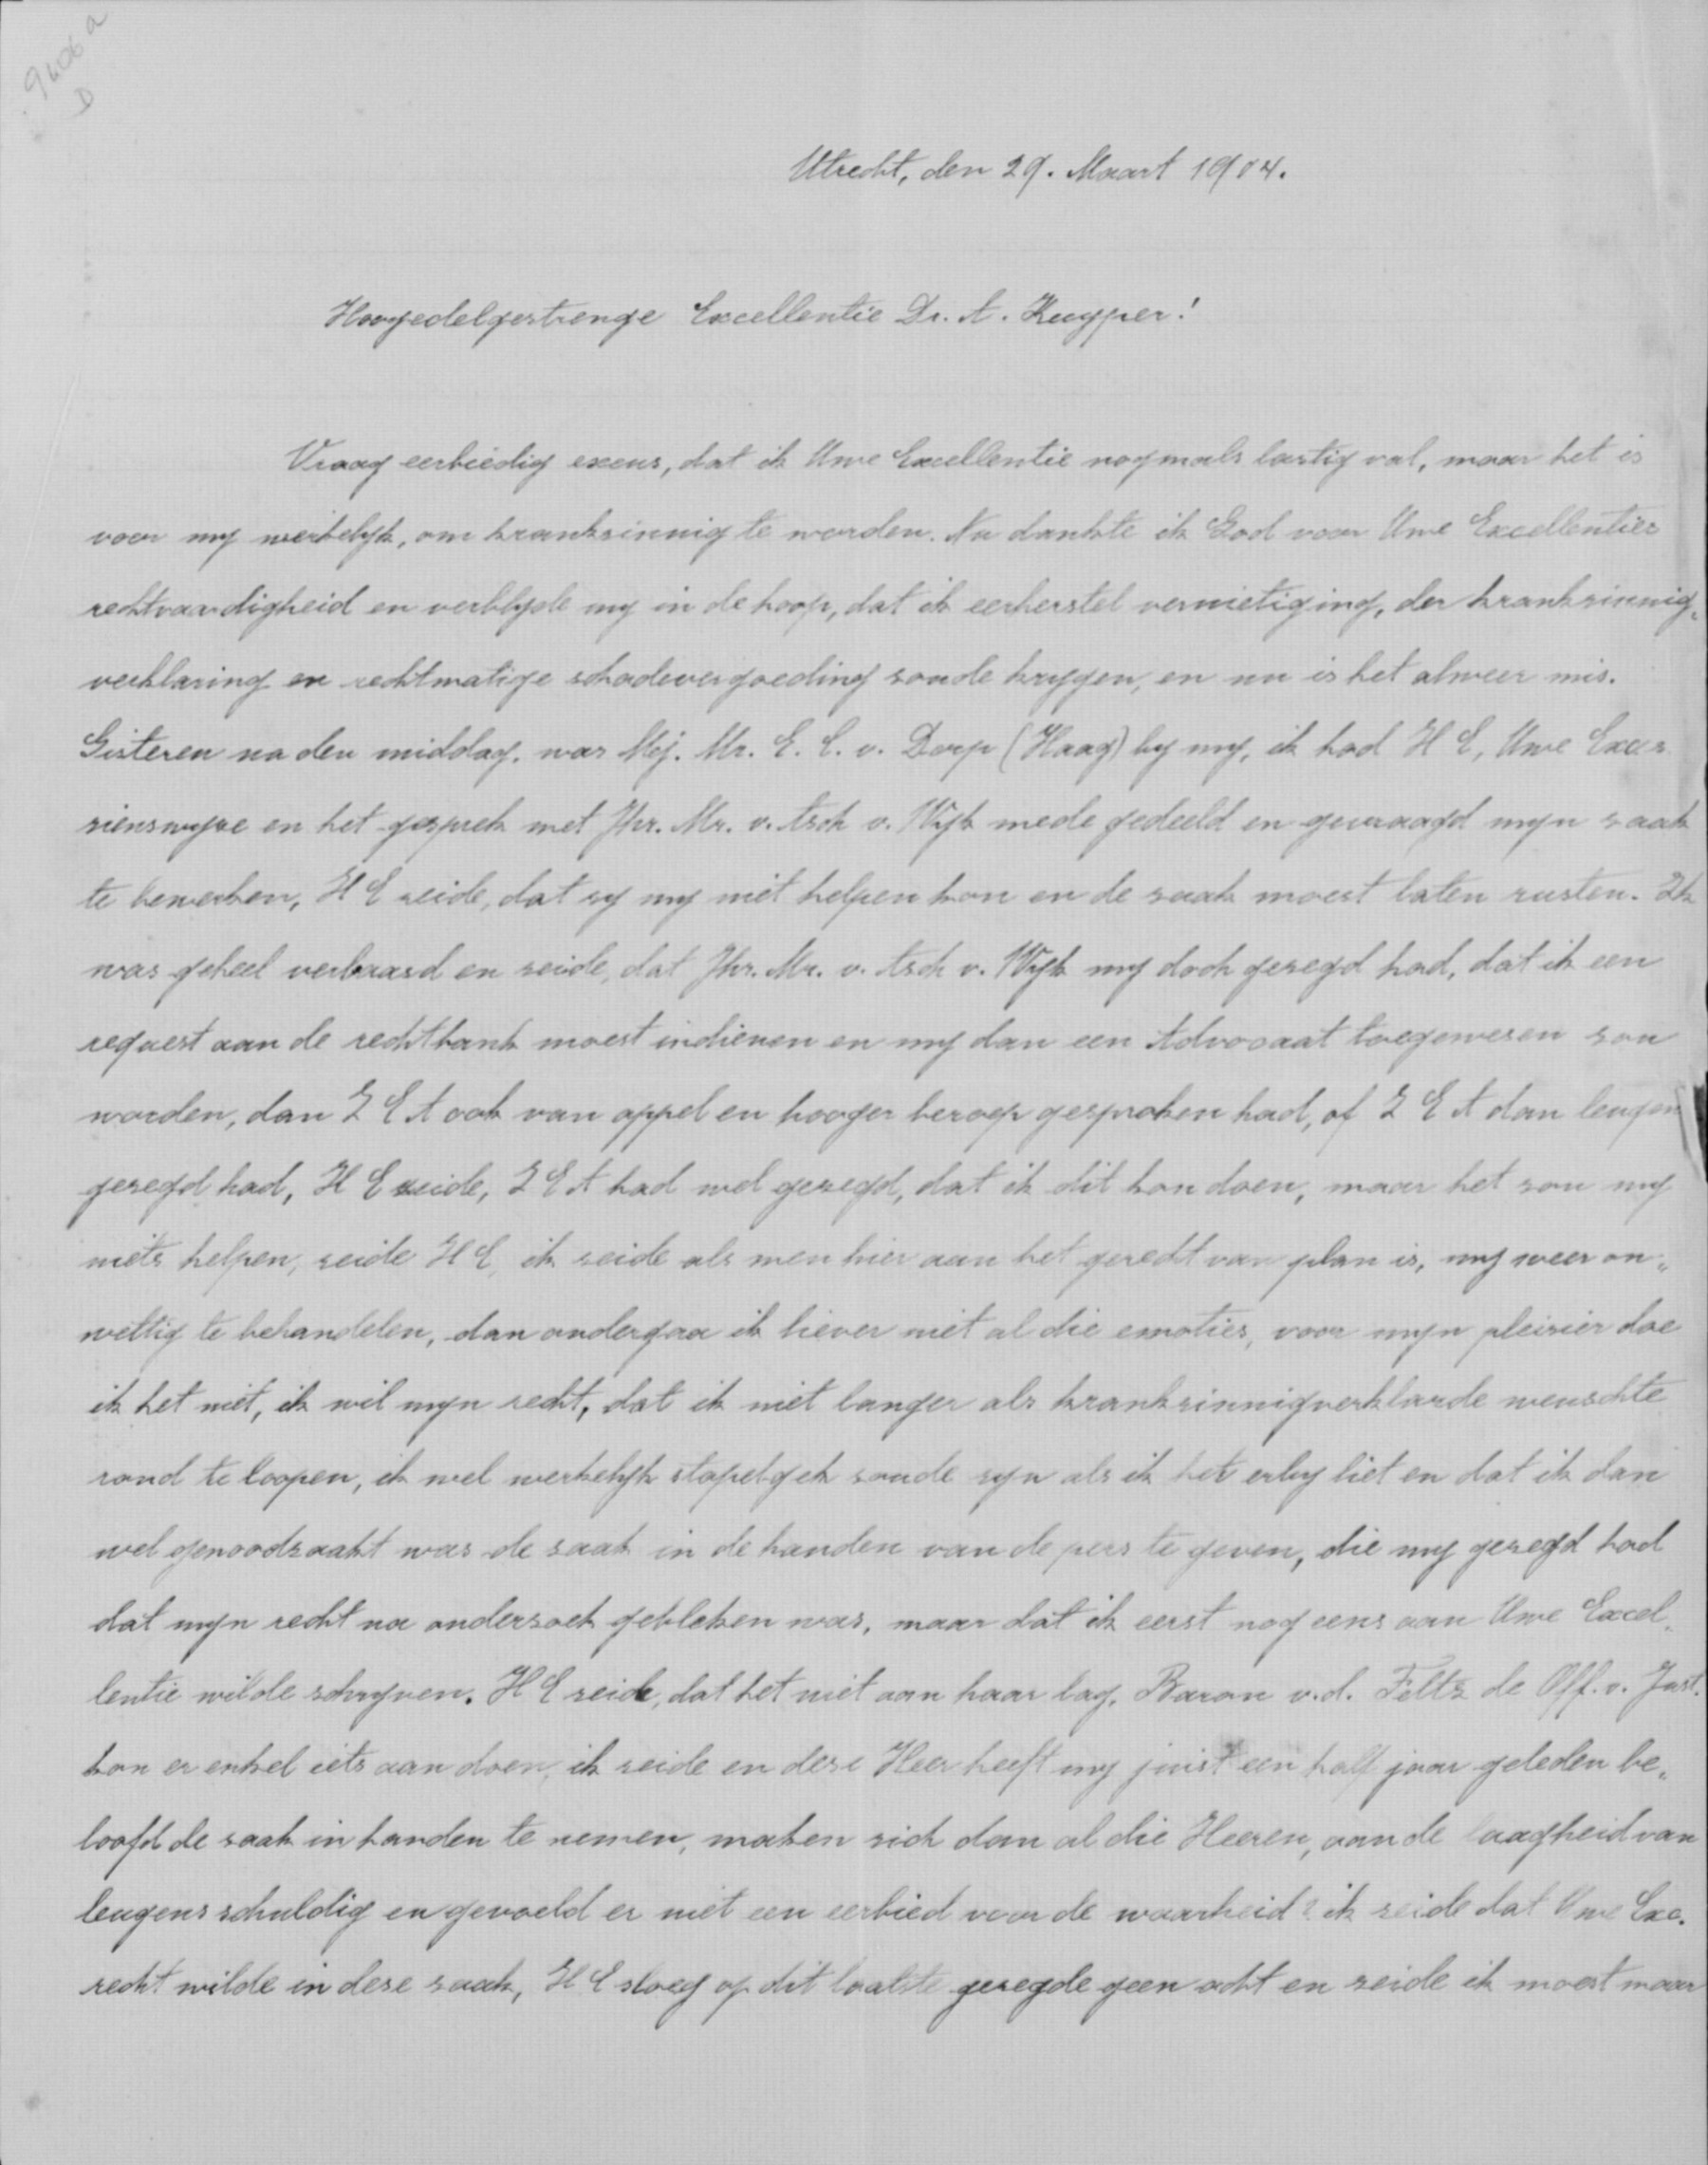 9406 a
D
Utrecht, den 29. Maart 1904.
Hoogedelgestrenge Excellentie Dr. A. Kuyper!
Vraag eerbiedig excus, dat ik Uwe Excellentie nogmals lastig val, maar het is
voor my werkelyk, om kranksinnig te worden. Nu dankte ik God voor Uwe Excellenties
rechtvaardigheid en verblyde my in de hoop, dat ik eerherstel vernietiging, der kranksinnig„
verklaring en rechtmatige schadevergoeding soude krygen, en nu is het alweer mis.
Gisteren na den middag, was Mej. Mr. E. C. v. Dorp (Haag) by my, ik had H E, Uwe Exces
sienswyse en het gesprek met Jhr. Mr. v. Asch v. Wyk mede gedeeld en gevraagd myn saak
te bewerken, H E seide, dat sy my niet helpen kon en de saak moest laten rusten. Ik
was geheel verbaasd en seide, dat Jhr. Mr. v. Asch v. Wyk my doch gesegd had, dat ik een
request aan de rechtbank moest indienen en my dan een Advocaat toegewesen sou
worden, dan Z E A ook van appel en hooger beroep gesproken had, of Z E A dan leugen
gesegd had, H E seide, Z E A had wel gesegd, dat ik dit kon doen, maar het sou my
niets helpen, seide H E, ik seide als men hier aan het gerecht van plan is, my weer on„
wettig te behandelen, dan ondergaa ik liever niet al die emoties, voor myn pleisier doe
ik het niet, ik wil myn recht, dat ik niet langer als kranksinnigverklarde wenschte
rond te loopen, ik wel werkelyk stapelgek soude syn als ik het erby liet en dat ik dan
wel genoodsaakt was de saak in de handen van de pers te geven, die my gesegd had
dat myn recht na ondersoek gebleken was, maar dat ik eerst nog eens aan Uwe Excel„
lentie wilde schryven. H E seide, dat het niet aan haar lag, Baron v.d. Feltz de Off. v. Just.
kon er enkel iets aan doen, ik seide en dese Heer heeft my juist een half jaar geleden be„
loofd de saak in handen te nemen, maken sich dan al die Heeren, aan de laagheid van
leugens schuldig en gevoeld er niet een eerbied voor de waarheid? ik seide dat Uwe Exc.
recht wilde in dese saak, H E sloeg op dit laatste gesegde geen acht en seide ik moest maar